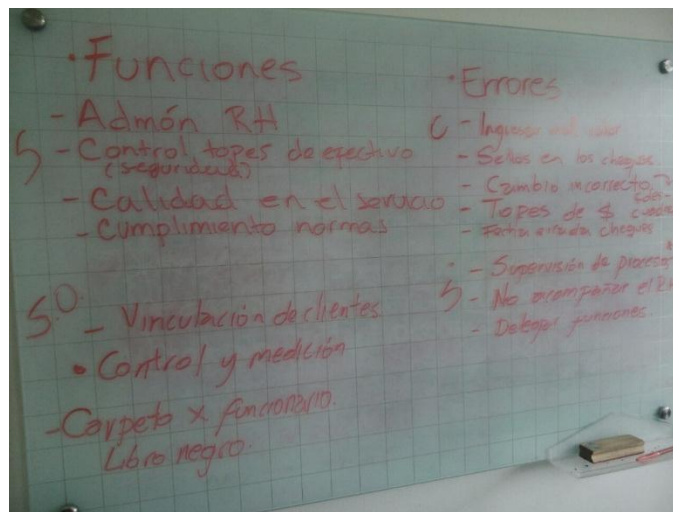 · Funciones
- Admón RH
S - Control topes de efectivo
(seguridad)
- Calidad en el servicio
- Cumplimiento normas
S.O. - Vinculación de clientes
· Control y medición
- Carpeta x funcionario.
Libro negro.
· Errores
C - Ingresar mal valor
- Sellos en los cheques
- Cambio incorrecto
- Topes de $
- Fecha errada cheques
- Supervisión de procesos
S - No acompañar el
- Delegar funciones.